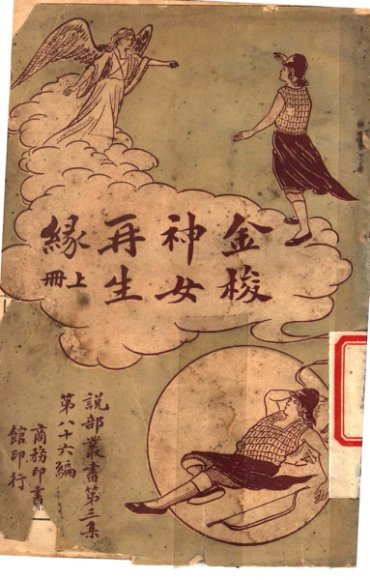 金梭神女再生緣
上冊
說部叢書第三集
第八十六編
商務印書
館印行